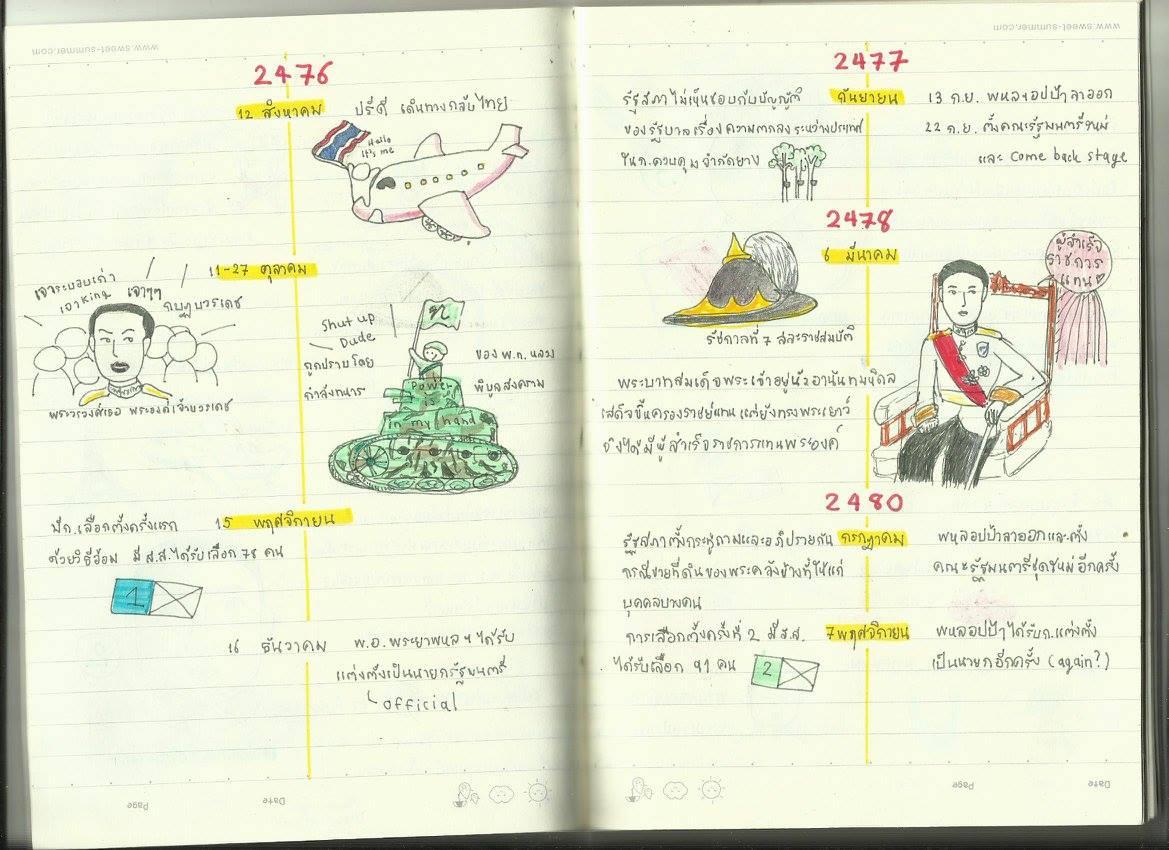 www.sweet-summer.com
2476
12 สิงหาคม
ปรีดี เดินทางกลับไทย
Hello
It's me
11-27 ตุลาคม
เจาระบอบเก่า
เอาKing เจาๆๆ
กบฏบวรเดช
พระวรวงศ์เธอ พระองค์เจ้าบวรเดช
Shut up
Dude
ถูกปราบโดย
กำลังทหาร
ของ พ.ท. หลวง
พิบูลสงคราม
Power
is
in my hand
15 พฤศจิกายน
มีก.เลือกตั้งครั้งแรก
ด้วยวิธีอ้อม มี ส.ส.ได้รับเลือก 78 คน
1
16 ธันวาคม
พ.อ. พระยาพหลฯ ได้รับ
แต่งตั้งเป็นนายกรัฐมนตรี
official
Date
Page
www.sweet-summer.com
2477
กันยายน
รัฐสภาไม่เห็นชอบกับบัญญัติ
ของรัฐบาลเรื่องความตกลงระหว่างประเทศ
ในก.ควบคุมจำกัดยาง
13 ก.ย. พหลฯอปป้าลาออก
22 ก.ย. ตั้งคณะรัฐมนตรีใหม่
และ Come back stage
2478
6 มีนาคม
รัชกาลที่ 7 สละราชสมบัติ
ผู้สำเร็จ
ราชการ
แทน
พระบาทสมเด็จพระเจ้าอยู่หัวอานันทมหิดล
เสด็จขึ้นครองราชย์แทน แต่ยังทรงพระเยาว์
จึงได้มีผู้สำเร็จราชการแทนพระองค์
2480
กรกฎาคม
รัฐสภาตั้งกระทู้ถามและอภิปรายกัน
กรณีขายที่ดินของพระคลังข้างที่ให้แก่
บุคคลบางคน
พหลอปป้าลาออกและตั้ง
คณะรัฐมนตรีชุดใหม่อีกครั้ง
7พฤศจิกายน
การเลือกตั้งครั้งที่ 2 มีส.ส.
ได้รับเลือก 91 คน
2
พหลอปป้าได้รับก.แต่งตั้ง
เป็นนายกอีกครั้ง (again?)
Page
Date